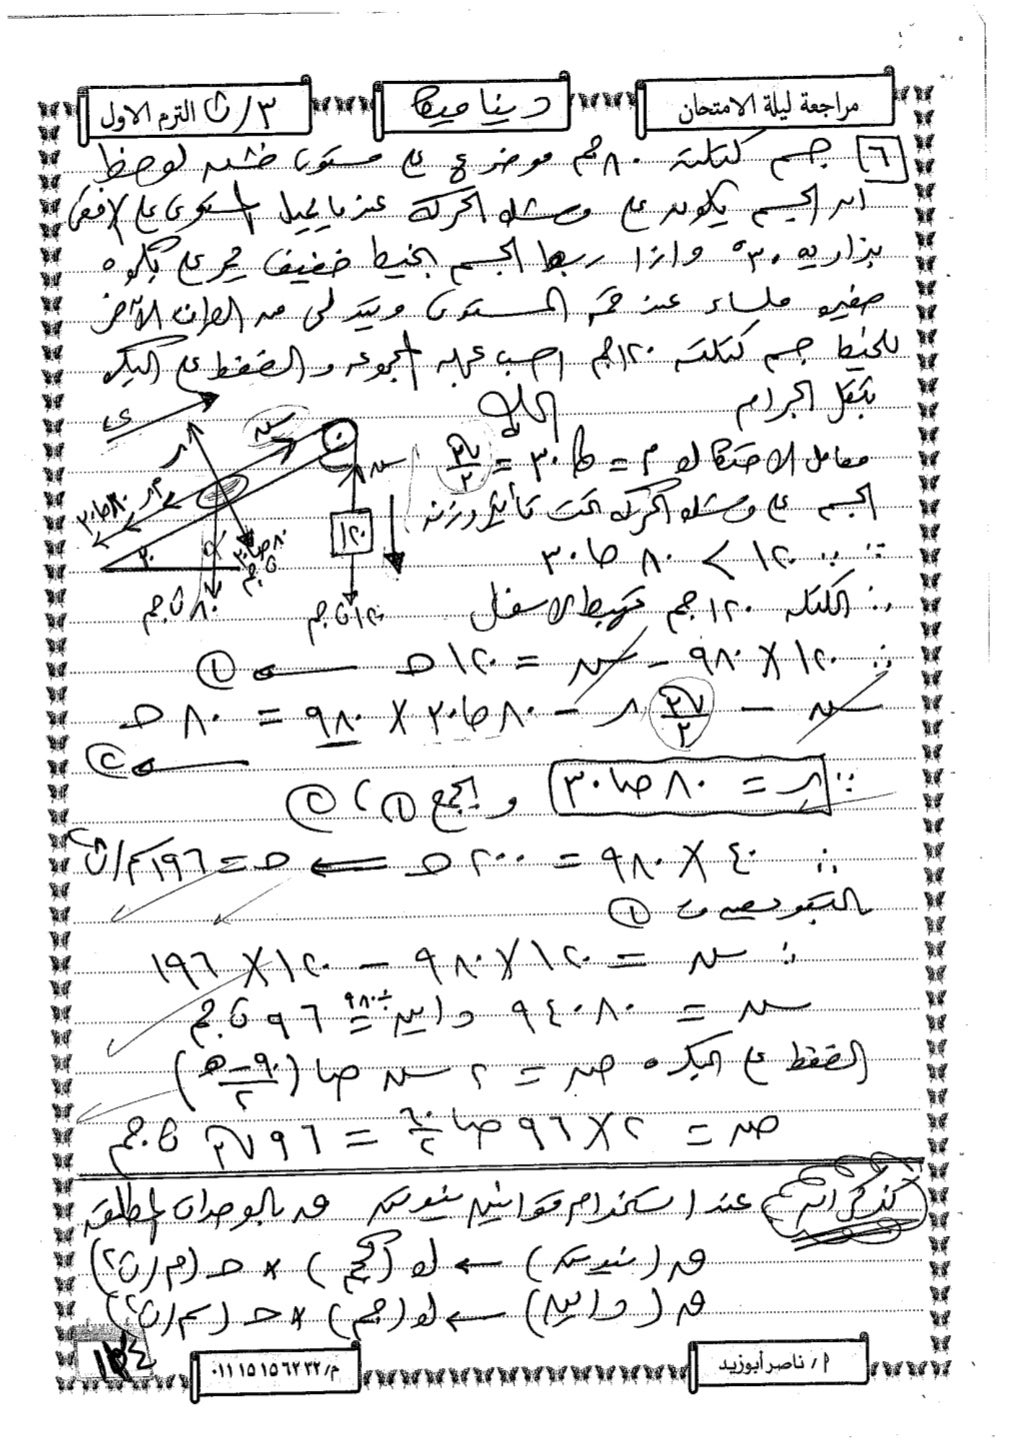 مراجعة ليلة الامتحان
ديناميكا
٣/ث الترم الاول
٦ جسم كتلته ٨٠ جم موضوع على مستوى خشن لوحظ
ان الجسم يكون على وشك الحركة عندما يميل المستوى على الافقى
بزاوية ٣٠° واذا ربط الجسم بخيط خفيف يمر على بكرة
صغيرة ملساء عند قمة المستوى ويتدلى من الطرف الآخر
للخيط جسم كتلته ١٢٠ جم احسب عجلة المجموعة والضغط على البكرة
بثقل الجرام
الحل
معامل الاحتكاك م = ظا ٣٠ = √٣/٣
الجسم على وشك الحركة تحت تأثير وزنه
∵ ١٢٠ > ٨٠ حا ٣٠
∴ الكتلة ١٢٠ جم تهبط لاسفل
∴ ١٢٠ × ٩٨٠ − سہ = ١٢٠ حـ ← ①
سہ − √٣/٣ ر − ٨٠ حا ٣٠ × ٩٨٠ = ٨٠ حـ
← ②
∵ ر = ٨٠ حتا ٣٠ وبجمع ① ، ②
∴ ٤٠ × ٩٨٠ = ٢٠٠ حـ ← حـ = ١٩٦ سم/ث٢
بالتعويض فى ①
∴ سہ = ١٢٠ × ٩٨٠ − ١٢٠ × ١٩٦
سہ = ٩٤٠٨٠ داين ÷٩٨٠ = ٩٦ ث.جم
الضغط على البكرة ضہ = ٢ سہ حتا (٩٠ − هـ/٢)
ضہ = ٢ × ٩٦ حتا ٦٠/٢ = ٩٦ √٣ ث.جم
تذكر ان عند استخدام قوانين نيوتن ق بالوحدات المطلقة
ق (نيوتن) ← ك (كجم) * حـ (م/ث٢)
ق (داين) ← ك (جم) * حـ (سم/ث٢)
أ/ ناصر أبوزيد
م/ ٠١١١٥١٥٦٢٣٢
ى
سہ
ر
م ر
٨٠ حا ٣٠
٨٠ حتا ٣٠
ث.جم
٣٠
٨٠ ث جم
سہ
١٢٠
١٢٠ ث جم